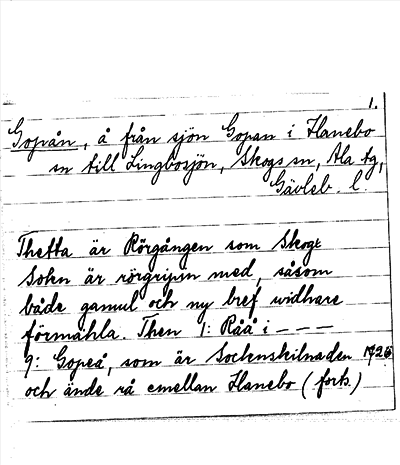 1.
Gopån, å från sjön Gopan i Hanebo
sn till Lingbosjön, Skogs sn, Ala tg,
Gävleb. l.
Thetta är Rörgången som Skogz
Sokn är rörgripin med, såsom
både gamul och ny bref widhare
förmähla. Then 1: Råå i – – –
9: Gopeå, som är Sockenskilnaden 1726
och ände rå emellan Hanebo (forts.)